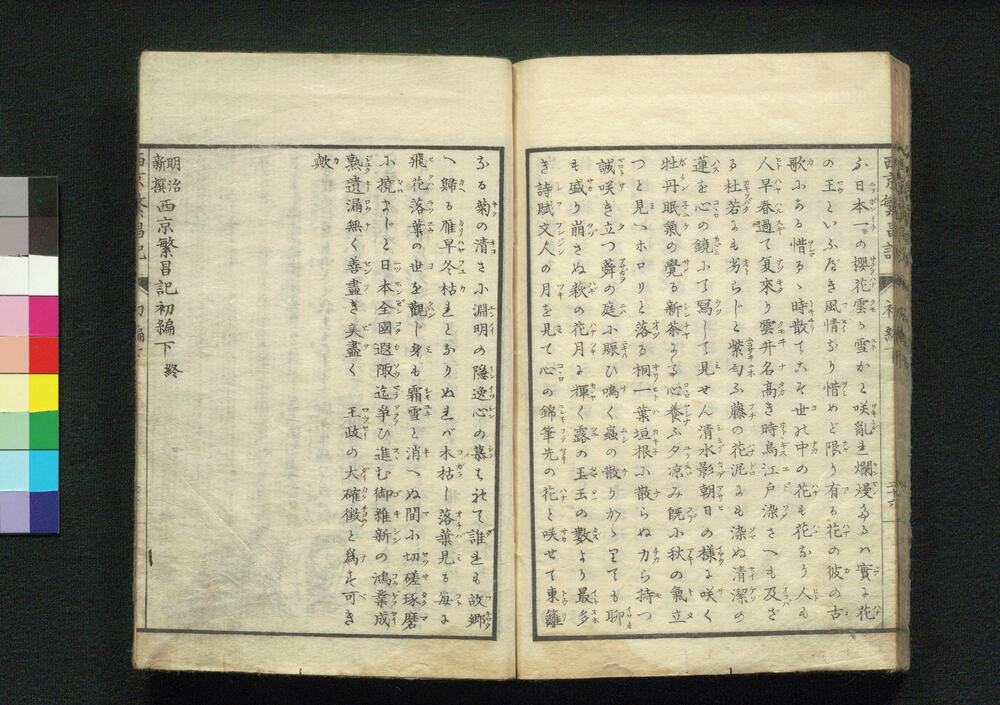 ふ日本一の櫻花雲り雪かと咲亂れ爛熳たるハ實に花
の王といふべき風情なり惜めど限り有る花の彼の古
歌にある惜るゝ時散てこそ世の中の花も花なり人も
人早春過て夏來り雲井名高き時鳥江戸染さへも及ざ
る杜若にも劣らじと紫匂ふ藤の花泥にも染ぬ清潔の
蓮を心の鏡にて寫して見せん清水影朝日の樣に咲く
牡丹眠氣の覺る新茶よく心養ふ夕凉み既に秋の氣立
つと見へホロリと落る桐一葉垣根に散らぬ力ら持つ
誠咲き立つ蕣の庭に賑ひ鳴く蟲の散りかゝりても聊
も盛り崩さぬ萩の花月に輝く露の玉玉の數より最多
き詩賦文人の月を見て心の錦筆先の花と咲せて東籬
なる菊の清さに淵明の隱逸心の慕はれて誰しも故郷
へ歸る雁早冬枯れとなりぬれバ木枯し落葉見る毎に
飛花落葉の世を觀じ身も霜雪と消へぬ間に切磋琢磨
に撓まじと日本全國遐陬迄爭ひ進む御維新の鴻業成
熟遺漏無く善盡き美盡く 王政の大確徴と爲す可き
歟
明治新撰西京繁昌記初編下 終